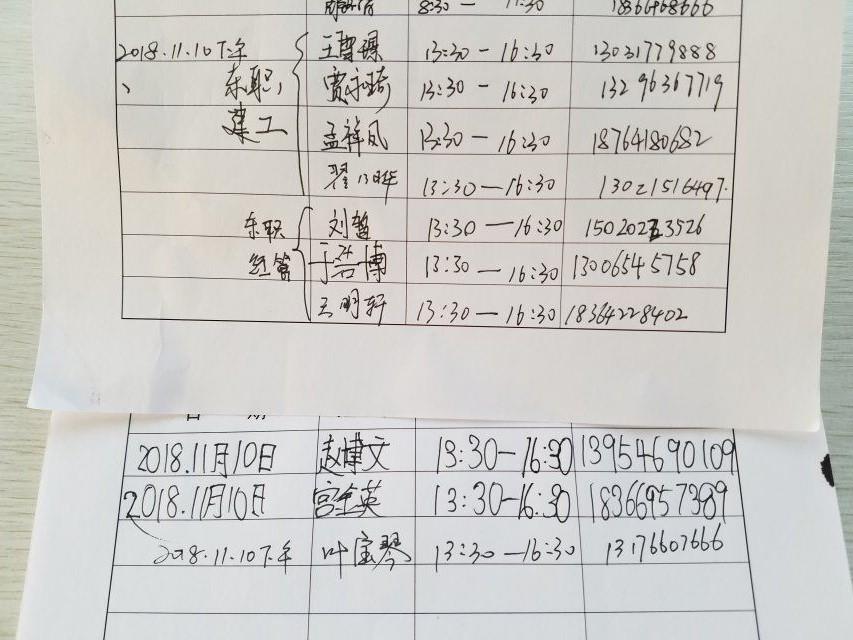 8:30 — 11:30 18366468666
2018.11.10下午 13:30 — 16:30 13031779888
东职, 贾永琦 13:30 — 16:30 13296367719
建工 孟祥凤 13:30 — 16:30 18764180682
翟 13:30 — 16:30 13021516497.
东职 刘哲 13:30 — 16:30 15020223526
经管 于 博 13:30 — 16:30 13065545758
王明轩 13:30 — 16:30 18364228402
日 期
2018.11月10日 赵博文 13:30—16:30 13954690109
2018.11月10日 宫全英 13:30—16:30 18366957389
2018.11.10下午 叶宝琴 13:30 — 16:30 13176607666